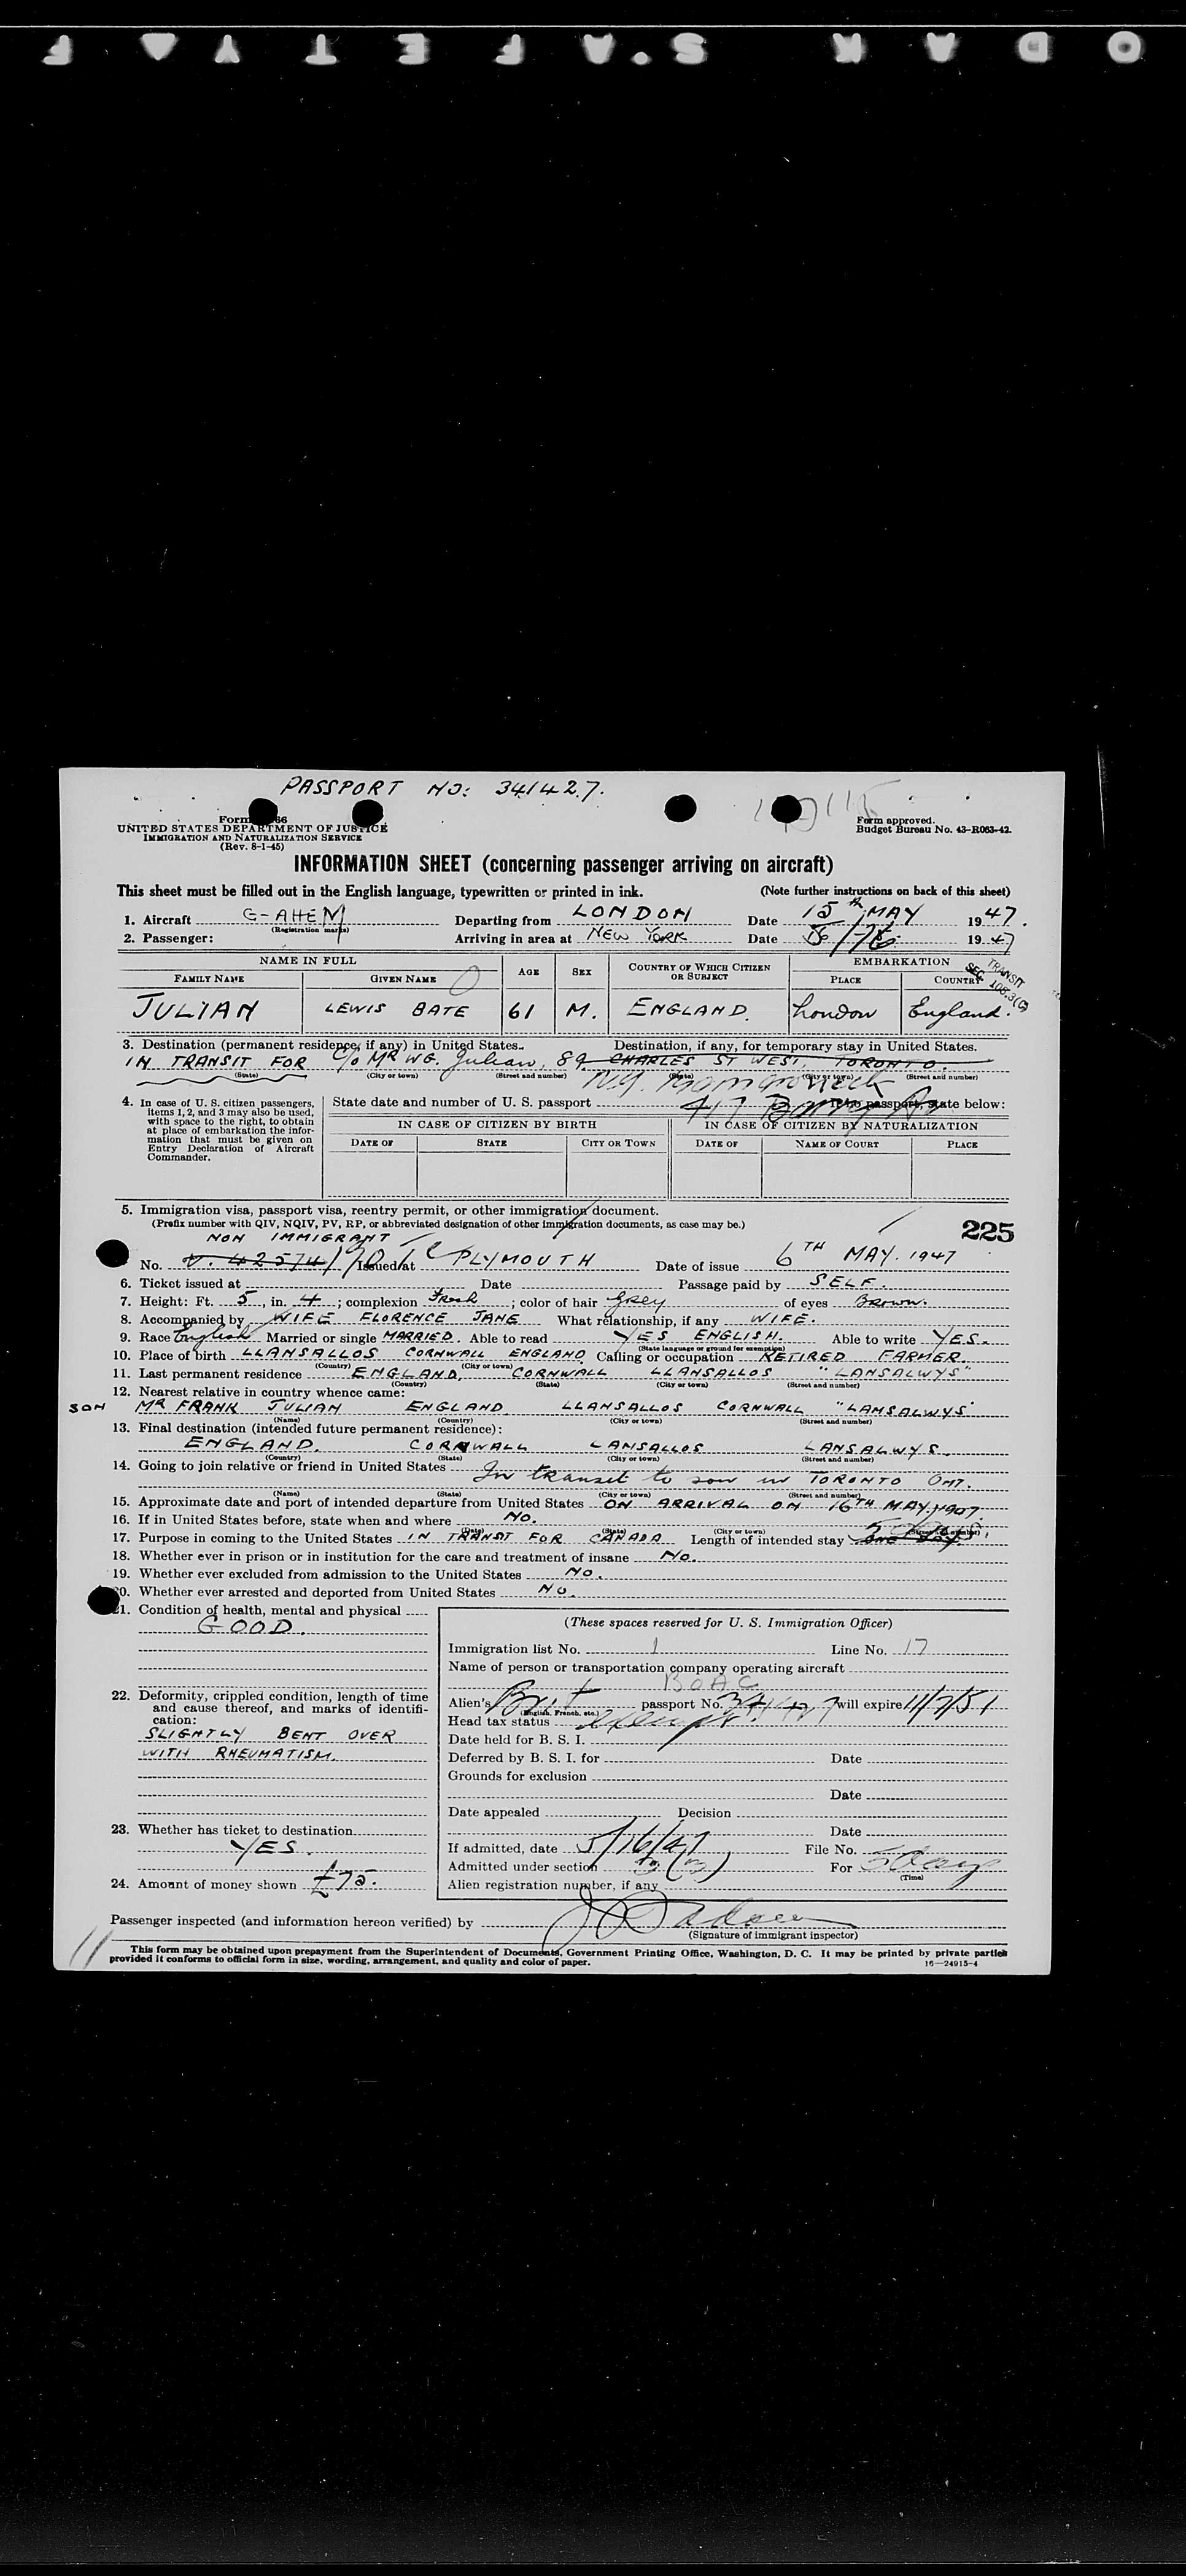 F E T Y A F S . A K A D O
PASSPORT NO: 341427.
Form 66
UNITED STATES DEPARTMENT OF JUSTICE
IMMIGRATION AND NATURALIZATION SERVICE
(Rev. 8-1-45)
Form approved.
Budget Bureau No. 43-R063-42.
INFORMATION SHEET (concerning passenger arriving on aircraft)
This sheet must be filled out in the English language, typewritten or printed in ink. (Note further instructions on back of this sheet)
1. Aircraft G-AHEM (Registration marks) Departing from LONDON Date 15th MAY 1947.
2. Passenger: Arriving in area at NEW YORK Date 5/16 1947
NAME IN FULL AGE SEX COUNTRY OF WHICH CITIZEN OR SUBJECT EMBARKATION
FAMILY NAME GIVEN NAME PLACE COUNTRY
TRANSIT SEC. 108.3(G)
JULIAN LEWIS BATE 61 M. ENGLAND. London England.
3. Destination (permanent residence, if any) in United States. Destination, if any, for temporary stay in United States.
IN TRANSIT FOR C/o MR WG. Julian, 89 CHARLES ST WEST, TORONTO.
(State) (City or town) (Street and number) (State) (City or town) (Street and number)
N.Y.
417
4. In case of U. S. citizen passengers, items 1, 2, and 3 may also be used, with space to the right, to obtain at place of embarkation the information that must be given on Entry Declaration of Aircraft Commander.
State date and number of U. S. passport passport, state below:
IN CASE OF CITIZEN BY BIRTH IN CASE OF CITIZEN BY NATURALIZATION
DATE OF STATE CITY OR TOWN DATE OF NAME OF COURT PLACE
5. Immigration visa, passport visa, reentry permit, or other immigration document.
(Prefix number with QIV, NQIV, PV, RP, or abbreviated designation of other immigration documents, as case may be.)
225
NON IMMIGRANT
No. V. 42574 Issued at PLYMOUTH Date of issue 6TH MAY. 1947
6. Ticket issued at Date Passage paid by SELF.
7. Height: Ft. 5, in. 4; complexion Fresh; color of hair Grey of eyes Brown.
8. Accompanied by WIFE FLORENCE JANE What relationship, if any WIFE.
9. Race English Married or single MARRIED. Able to read YES ENGLISH. Able to write YES.
(State language or ground for exemption)
10. Place of birth LLANSALLOS CORNWALL ENGLAND Calling or occupation RETIRED FARMER.
(Country) (City or town)
11. Last permanent residence ENGLAND, CORNWALL LLANSALLOS "LANSALWYS"
(Country) (State) (City or town) (Street and number)
12. Nearest relative in country whence came:
SON MR FRANK JULIAN ENGLAND LLANSALLOS CORNWALL "LANSALWYS"
(Name) (Country) (City or town) (Street and number)
13. Final destination (intended future permanent residence):
ENGLAND. CORNWALL LANSALLOS LANSALWYS.
(Country) (State) (City or town) (Street and number)
14. Going to join relative or friend in United States In transit to son in TORONTO ONT.
(Name) (State) (City or town) (Street and number)
15. Approximate date and port of intended departure from United States ON ARRIVAL ON 16TH MAY. 1947.
16. If in United States before, state when and where NO.
(Date) (State) (City or town) (Street and number)
17. Purpose in coming to the United States IN TRANSIT FOR CANADA Length of intended stay one day 5 days
18. Whether ever in prison or in institution for the care and treatment of insane NO.
19. Whether ever excluded from admission to the United States NO.
20. Whether ever arrested and deported from United States NO.
21. Condition of health, mental and physical
GOOD.
22. Deformity, crippled condition, length of time and cause thereof, and marks of identification:
SLIGHTLY BENT OVER
WITH RHEUMATISM.
23. Whether has ticket to destination
YES.
24. Amount of money shown £75.
(These spaces reserved for U. S. Immigration Officer)
Immigration list No. 1 Line No. 17
Name of person or transportation company operating aircraft
BOAC
Alien's Brit passport No. 341427 will expire 11/7/51
(English, French, etc.)
Head tax status exempt.
Date held for B. S. I.
Deferred by B. S. I. for Date
Grounds for exclusion
Date
Date appealed Decision
Date
If admitted, date 5/16/47 File No.
Admitted under section 3(3) For 5 days
(Time)
Alien registration number, if any
Passenger inspected (and information hereon verified) by
(Signature of immigrant inspector)
This form may be obtained upon prepayment from the Superintendent of Documents, Government Printing Office, Washington, D. C. It may be printed by private parties
provided it conforms to official form in size, wording, arrangement, and quality and color of paper. 16—24915-4